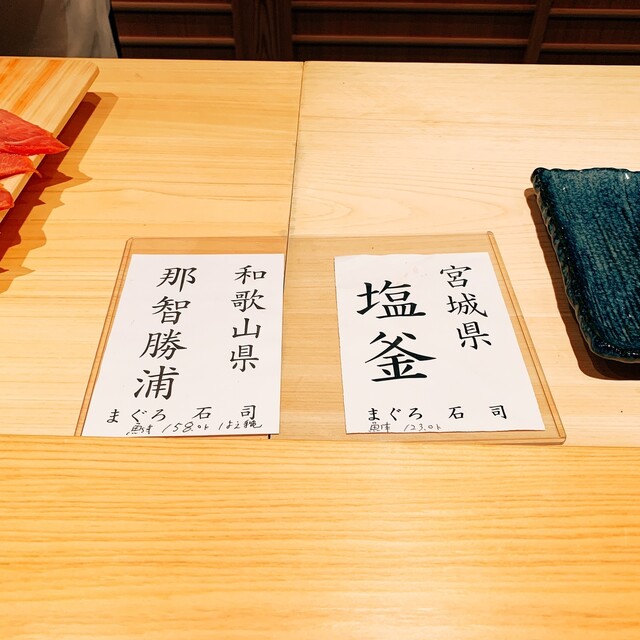 和歌山県
那智勝浦
まぐろ 石司
魚体 158.0k はえ縄
宮城県
塩釜
まぐろ 石司
魚体 123.0k